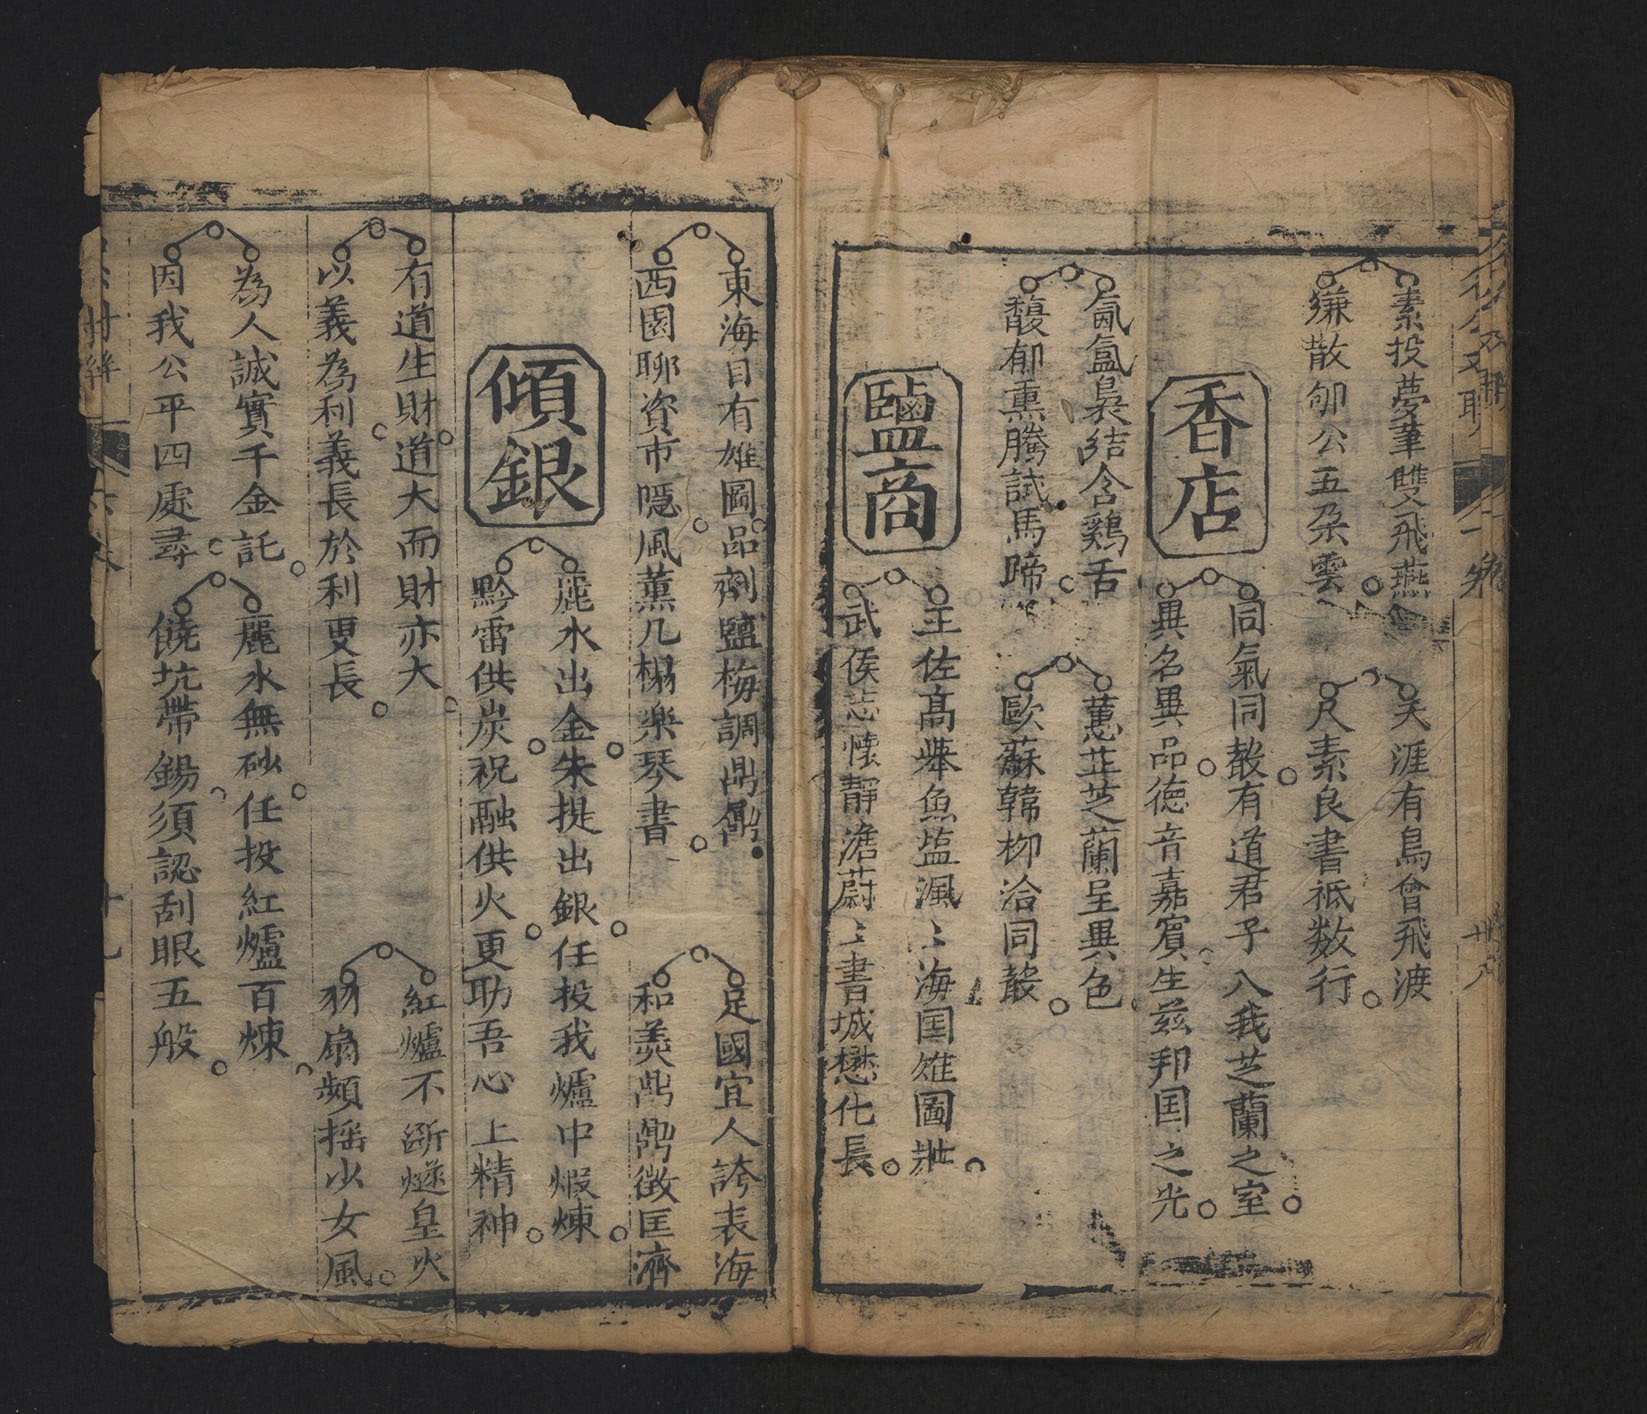 素投夢筆雙飛燕
天涯有鳥曾飛渡
嫌散郇公五朶雲
尺素良書祗数行
香店
同氣同聲有道君子入我芝蘭之室
異名異品徳音嘉賓生兹邦国之光
氤氲裊結含鷄舌
蕙芷芝蘭呈異色
馥郁熏騰試馬蹄
歐蘇韓柳洽同聲
鹽商
王佐高擧魚塩渢〻海国雄圖壯
武侯志懷靜澹蔚〻書城懋化長
東海目有雄圖品劑鹽梅調鼎鼐
足國宜人誇表海
西園聊資市隱風薰几榻樂琴書
和羹鼎鼐徴匡濟
傾銀
麗水出金朱提出銀任投我爐中煆煉
黔雷供炭祝融供火更助吾心上精神
有道生財道大而財亦大
紅爐不斷燧皇火
以義為利義長於利更長
羽扇頻摇少女風
為人誠實千金託
麗水無砂任投紅爐百煉
因我公平四處尋
饒坑帶錫須認刮眼五般